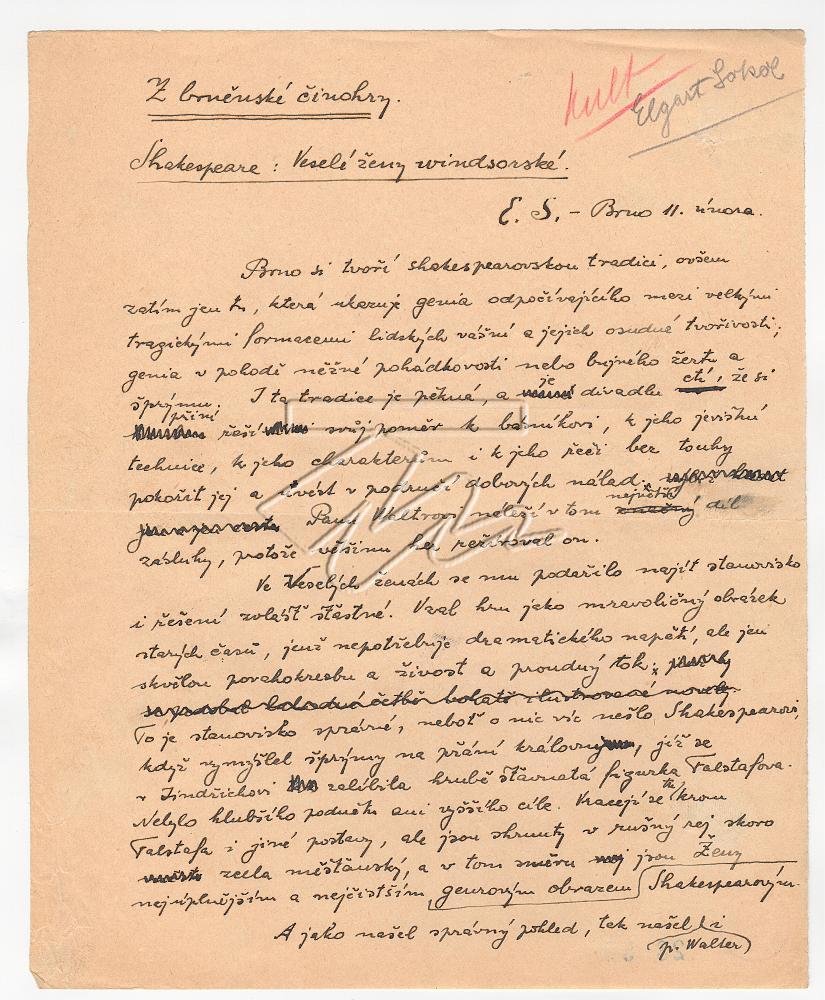 Z brněnské činohry.
kult
Elgart Sokol
Shakespeare: Veselé ženy windsorské.
E. S. - Brno 11. února.
Brno si tvoří shakespearovskou tradici, ovšem
zatím jen tu, která ukazuje genia odpočívajícího mezi velkými
tragickými formacemi lidských vášní a jejich osudné tvořivosti;
genia v pohodě něžné pohádkovosti nebo bujného žertu a
šprýmu. I ta tradice je pěkná, a je divadlu ctí, že si
přímí řeší svůj poměr k básníkovi, k jeho jevištní
technice, k jeho charakterům i k jeho řeči bez touhy
pokořit jej a uvést v područí dobových nálad.
Panu Waltrovi náleží v tom největší díl
zásluhy, protože většinu her režíroval on.
Ve Veselých ženách se mu podařilo najít stanovisko
i řešení zvlášť šťastné. Vzal hru jako mravoličný obrázek
starých časů, jenž nepotřebuje dramatického napětí, ale jen
skvělou povahokresbu a živost a proudný tok.
se podobal baladně četbě bohatě ilustrované novely.
To je stanovisko správné, neboť o nic víc nešlo Shakespearovi,
když vymýšlel šprýmy na přání královny, jíž se
v Jindřichovi zalíbila hrubě šťavnatá figurka Falstafova.
Nebylo hlubšího podnětu ani vyššího cíle. Vracejí se tu krom
Falstafa i jiné postavy, ale jsou shrnuty v rušný rej skoro
zcela měšťanský, a v tom směru jsou Ženy
nejúplnějším a nejčistším, genrovým obrazem Shakespearovým.
A jako našel správný pohled, tak našel i
p. Walter